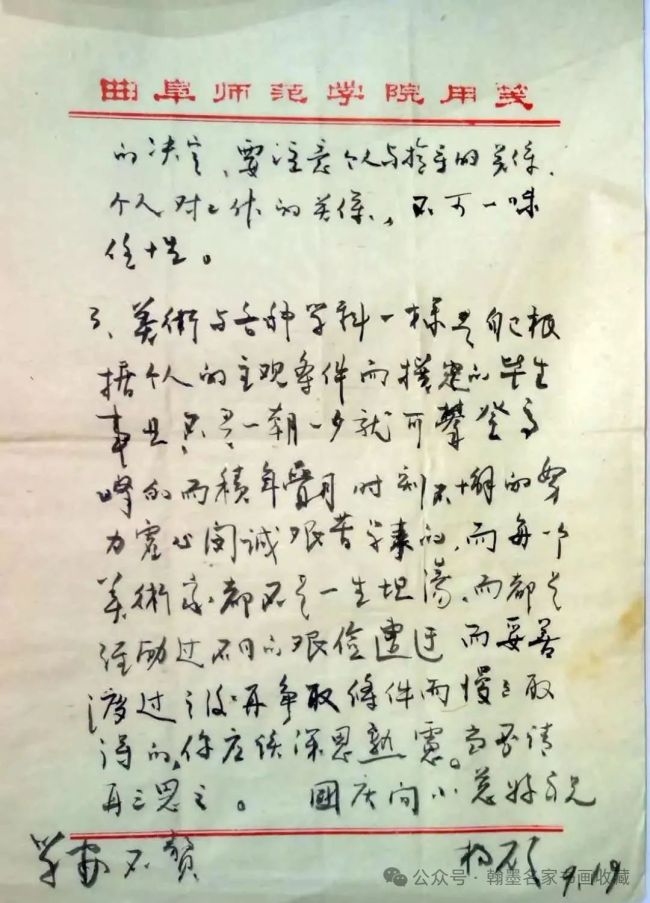 曲阜师范学院用笺
的决定、要注意个人与指导的关係、
个人对工作的关係、不可一味
任性。
3、美術与各种学科一様是自己根
据个人的主观条件而択定的毕生
事且不是一朝一夕就可攀登高
峰的而積年疊月时刻不懈的努
力虚心闻诚艰苦学来的,而每一个
美術家都不是一生坦蕩、而都是
经励过不同的艰俭遭迂而妥善
渡过之後再争取條件而慢之取
得的,你应该深思熟慮。
再三思之。國庆间小慈好
学安不赘
9.19
公众号·翰墨名家书画收藏